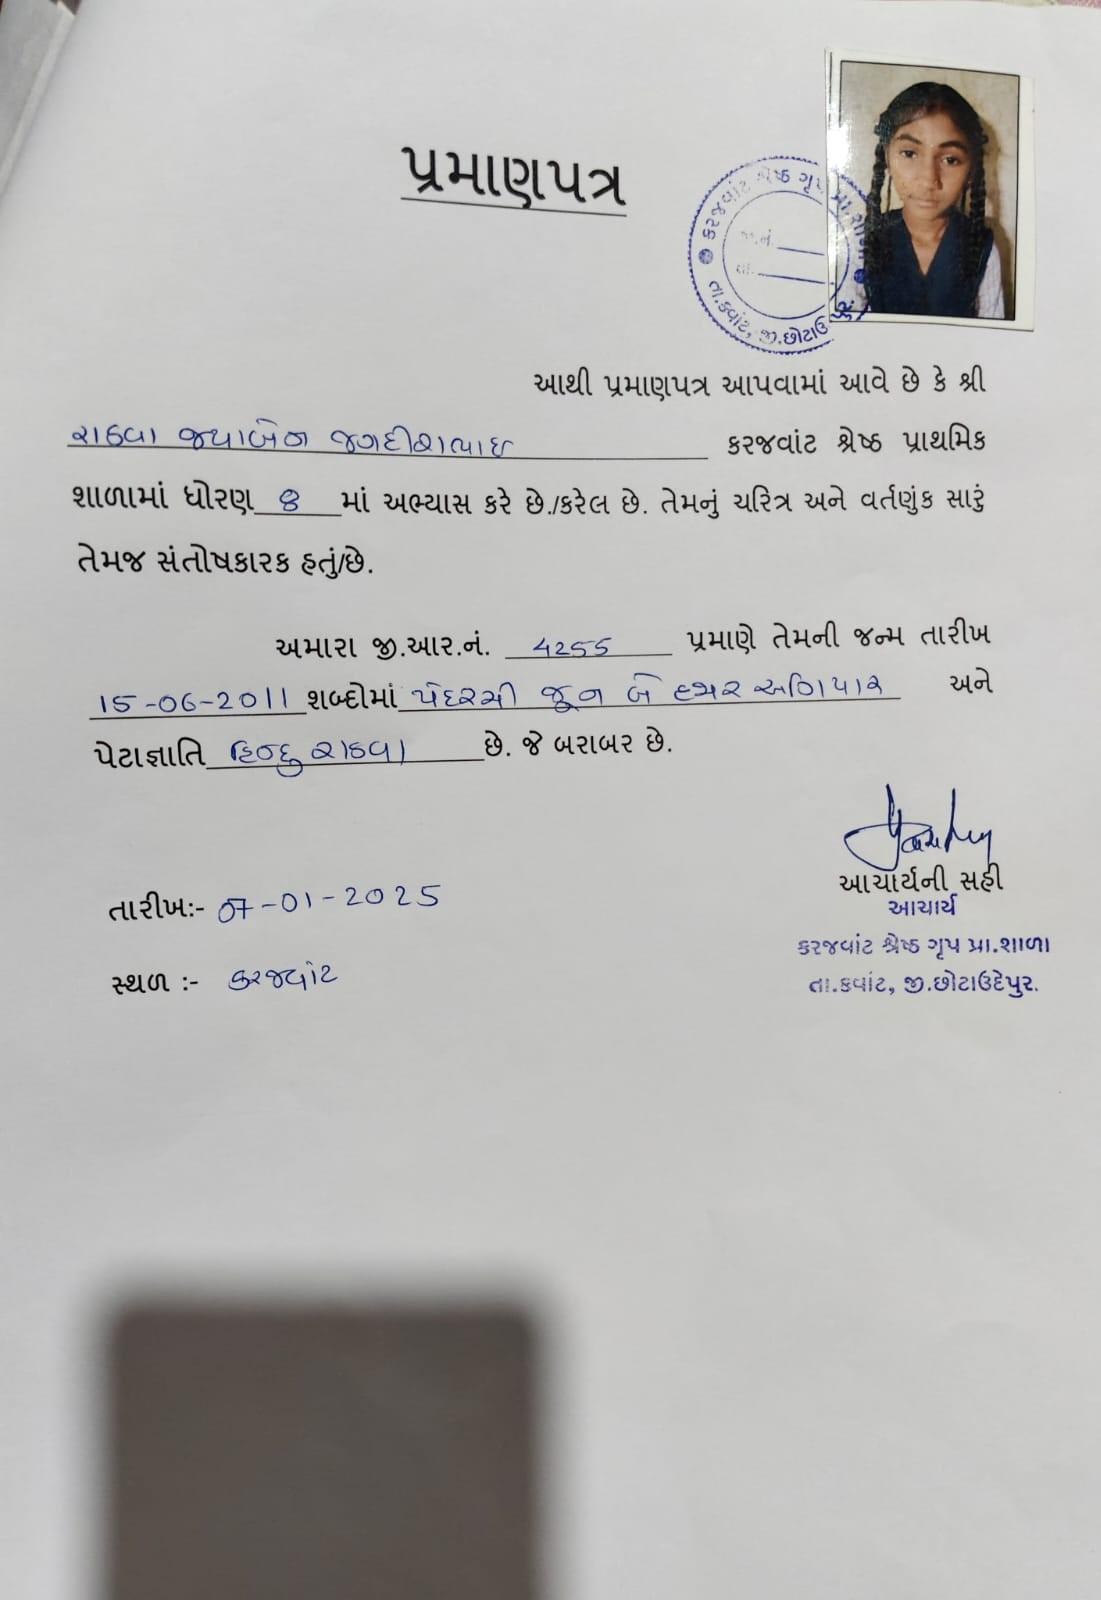 પ્રમાણપત્ર
કરજવાંટ શ્રેષ્ઠ ગૃપ પ્રા.શાળા
જા.નં.
તા.
તા.કવાંટ, જી.છોટાઉદેપુર.
આથી પ્રમાણપત્ર આપવામાં આવે છે કે શ્રી
રાઠવા જયાબેન જગદીશભાઇ કરજવાંટ શ્રેષ્ઠ પ્રાથમિક
શાળામાં ધોરણ 8 માં અભ્યાસ કરે છે./કરેલ છે. તેમનું ચરિત્ર અને વર્તણુંક સારું
તેમજ સંતોષકારક હતું/છે.
અમારા જી.આર.નં. 4255 પ્રમાણે તેમની જન્મ તારીખ
15-06-2011 શબ્દોમાં પંદરમી જૂન બે હજાર અગિયાર અને
પેટાજ્ઞાતિ હિન્દુ રાઠવા છે. જે બરાબર છે.
આચાર્યની સહી
આચાર્ય
તારીખઃ- 07-01-2025
કરજવાંટ શ્રેષ્ઠ ગૃપ પ્રા.શાળા
સ્થળ :- કરજવાંટ
તા.કવાંટ, જી.છોટાઉદેપુર.